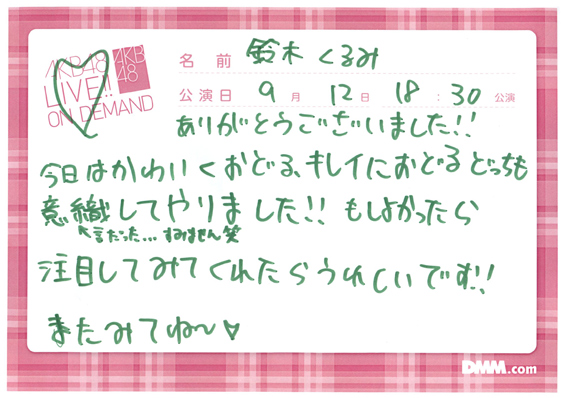 AKB48
LIVE!!
ON DEMAND
AKB
48
名前 鈴木くるみ
公演日 9月 12日 18:30 公演
ありがとうございました!!
今日はかわいくおどる、キレイにおどるどっちも
意織してやりました!! もしよかったら
↖言だった… すみません笑
注目してみてくれたらうれしいです!!
またみてね〜♡
DMM.com